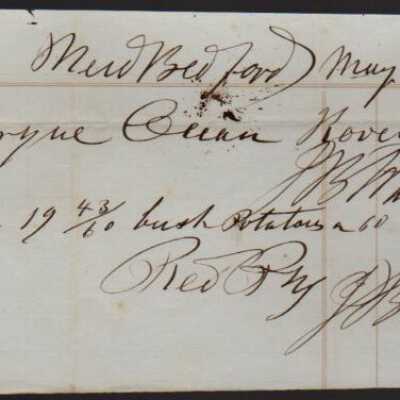 New Bedford May
Ocean Rover
J B
19 43/60 bush Potatoes a 60
Recd Pay J B